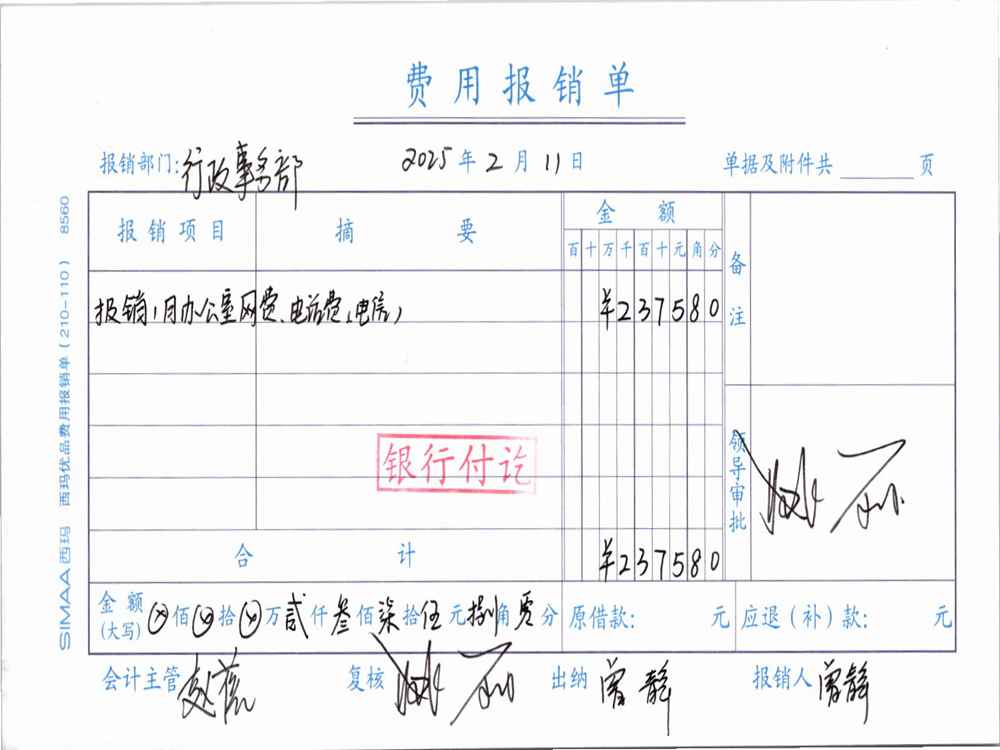 费用报销单
报销部门:行政事务部 2025年2月11日 单据及附件共 页
报销项目 摘要 金额 备注
百十万千百十元角分
报销1月办公室网费、电话费(电信) ¥237580
银行付讫
领导审批
合计 ¥237580
金额(大写) ⊗佰⊗拾⊗万贰仟叁佰柒拾伍元捌角零分 原借款: 元 应退(补)款: 元
会计主管 复核 出纳 曾静 报销人 曾静
SIMAA西玛 西玛优品费用报销单(210-110) 8560